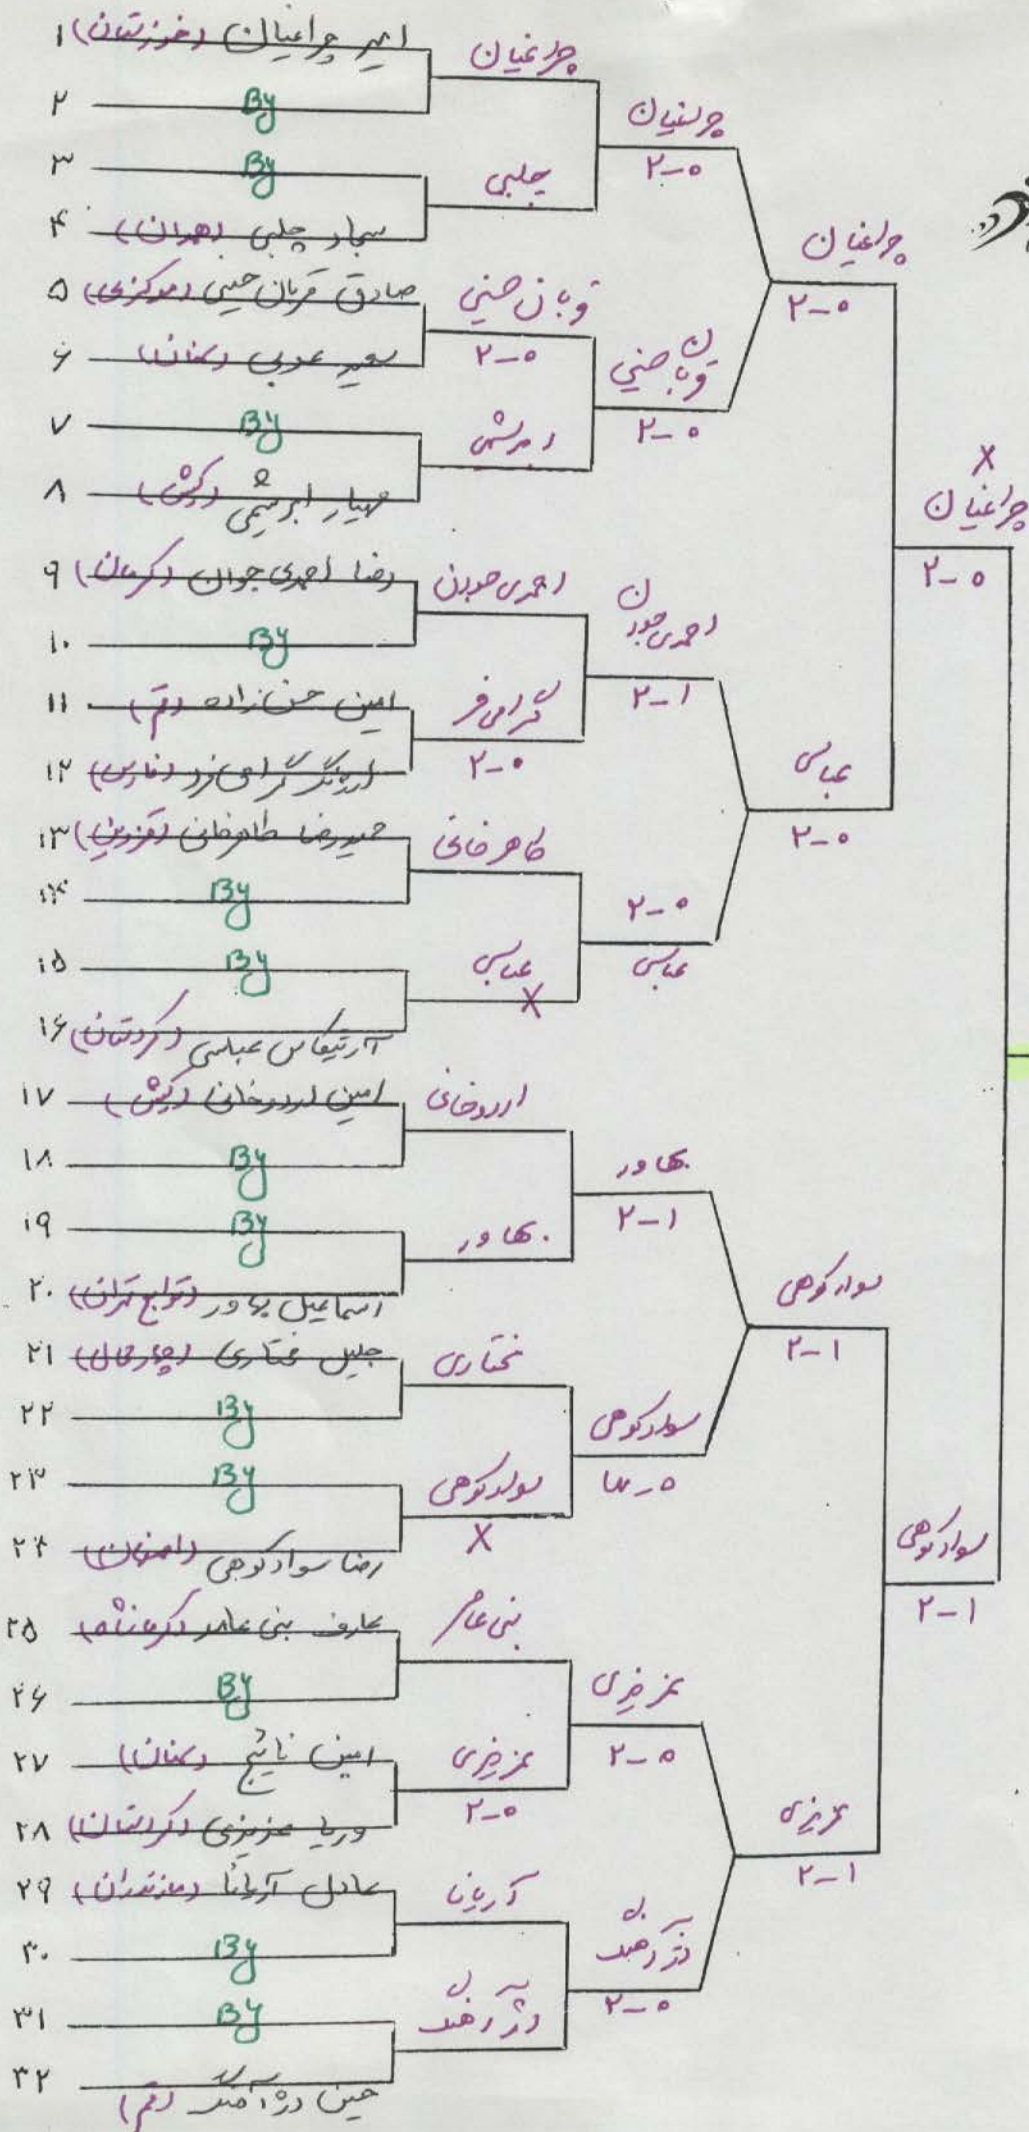 ۱ امیر چراغیان (خوزستان)
۲ By
۳ By
۴ سجاد چلبی (همدان)
۵ صادق قربان حسینی (مرکزی)
۶ سعید عربی (سمنان)
۷ By
۸ مهیار ابریشمی (کیش)
۹ رضا احمدی جوان (کرمان)
۱۰ By
۱۱ امین حسن زاده (قم)
۱۲ گرامی فرد (فارس)
۱۳ حمیدرضا طاهرخانی (قزوین)
۱۴ By
۱۵ By
۱۶ آرتیماس عباسی (کردستان)
۱۷ امین اردوخانی (کیش)
۱۸ By
۱۹ By
۲۰ اسماعیل بهاور (توابع تهران)
۲۱ جلیل مختاری (چهارمحال)
۲۲ By
۲۳ By
۲۴ رضا سوادکوهی (اصفهان)
۲۵ عارف بنی عامر (کرمانشاه)
۲۶ By
۲۷ امین نائیج (سمنان)
۲۸ وریا عزیزی (کردستان)
۲۹ عادل آریانا (مازندران)
۳۰ By
۳۱ By
۳۲ حسین دژآهنگ (قم)
چراغیان
چلبی
قربان حسینی
۲-۰
ابریشمی
احمدی جوان
گرامی فر
۲-۰
طاهرخانی
عباسی
X
اردوخانی
بهاور
مختاری
سوادکوهی
X
بنی عامر
عزیزی
۲-۰
آریانا
دژآهنگ
چراغیان
۲-۰
قربان حسینی
۲-۰
احمدی جوان
۲-۱
۲-۰
عباسی
بهاور
۲-۱
سوادکوهی
۰
عزیزی
۲-۰
دژآهنگ
۲-۰
چراغیان
۲-۰
عباسی
۲-۰
سوادکوهی
۲-۱
عزیزی
۲-۱
X
چراغیان
۲-۰
سوادکوهی
۲-۱